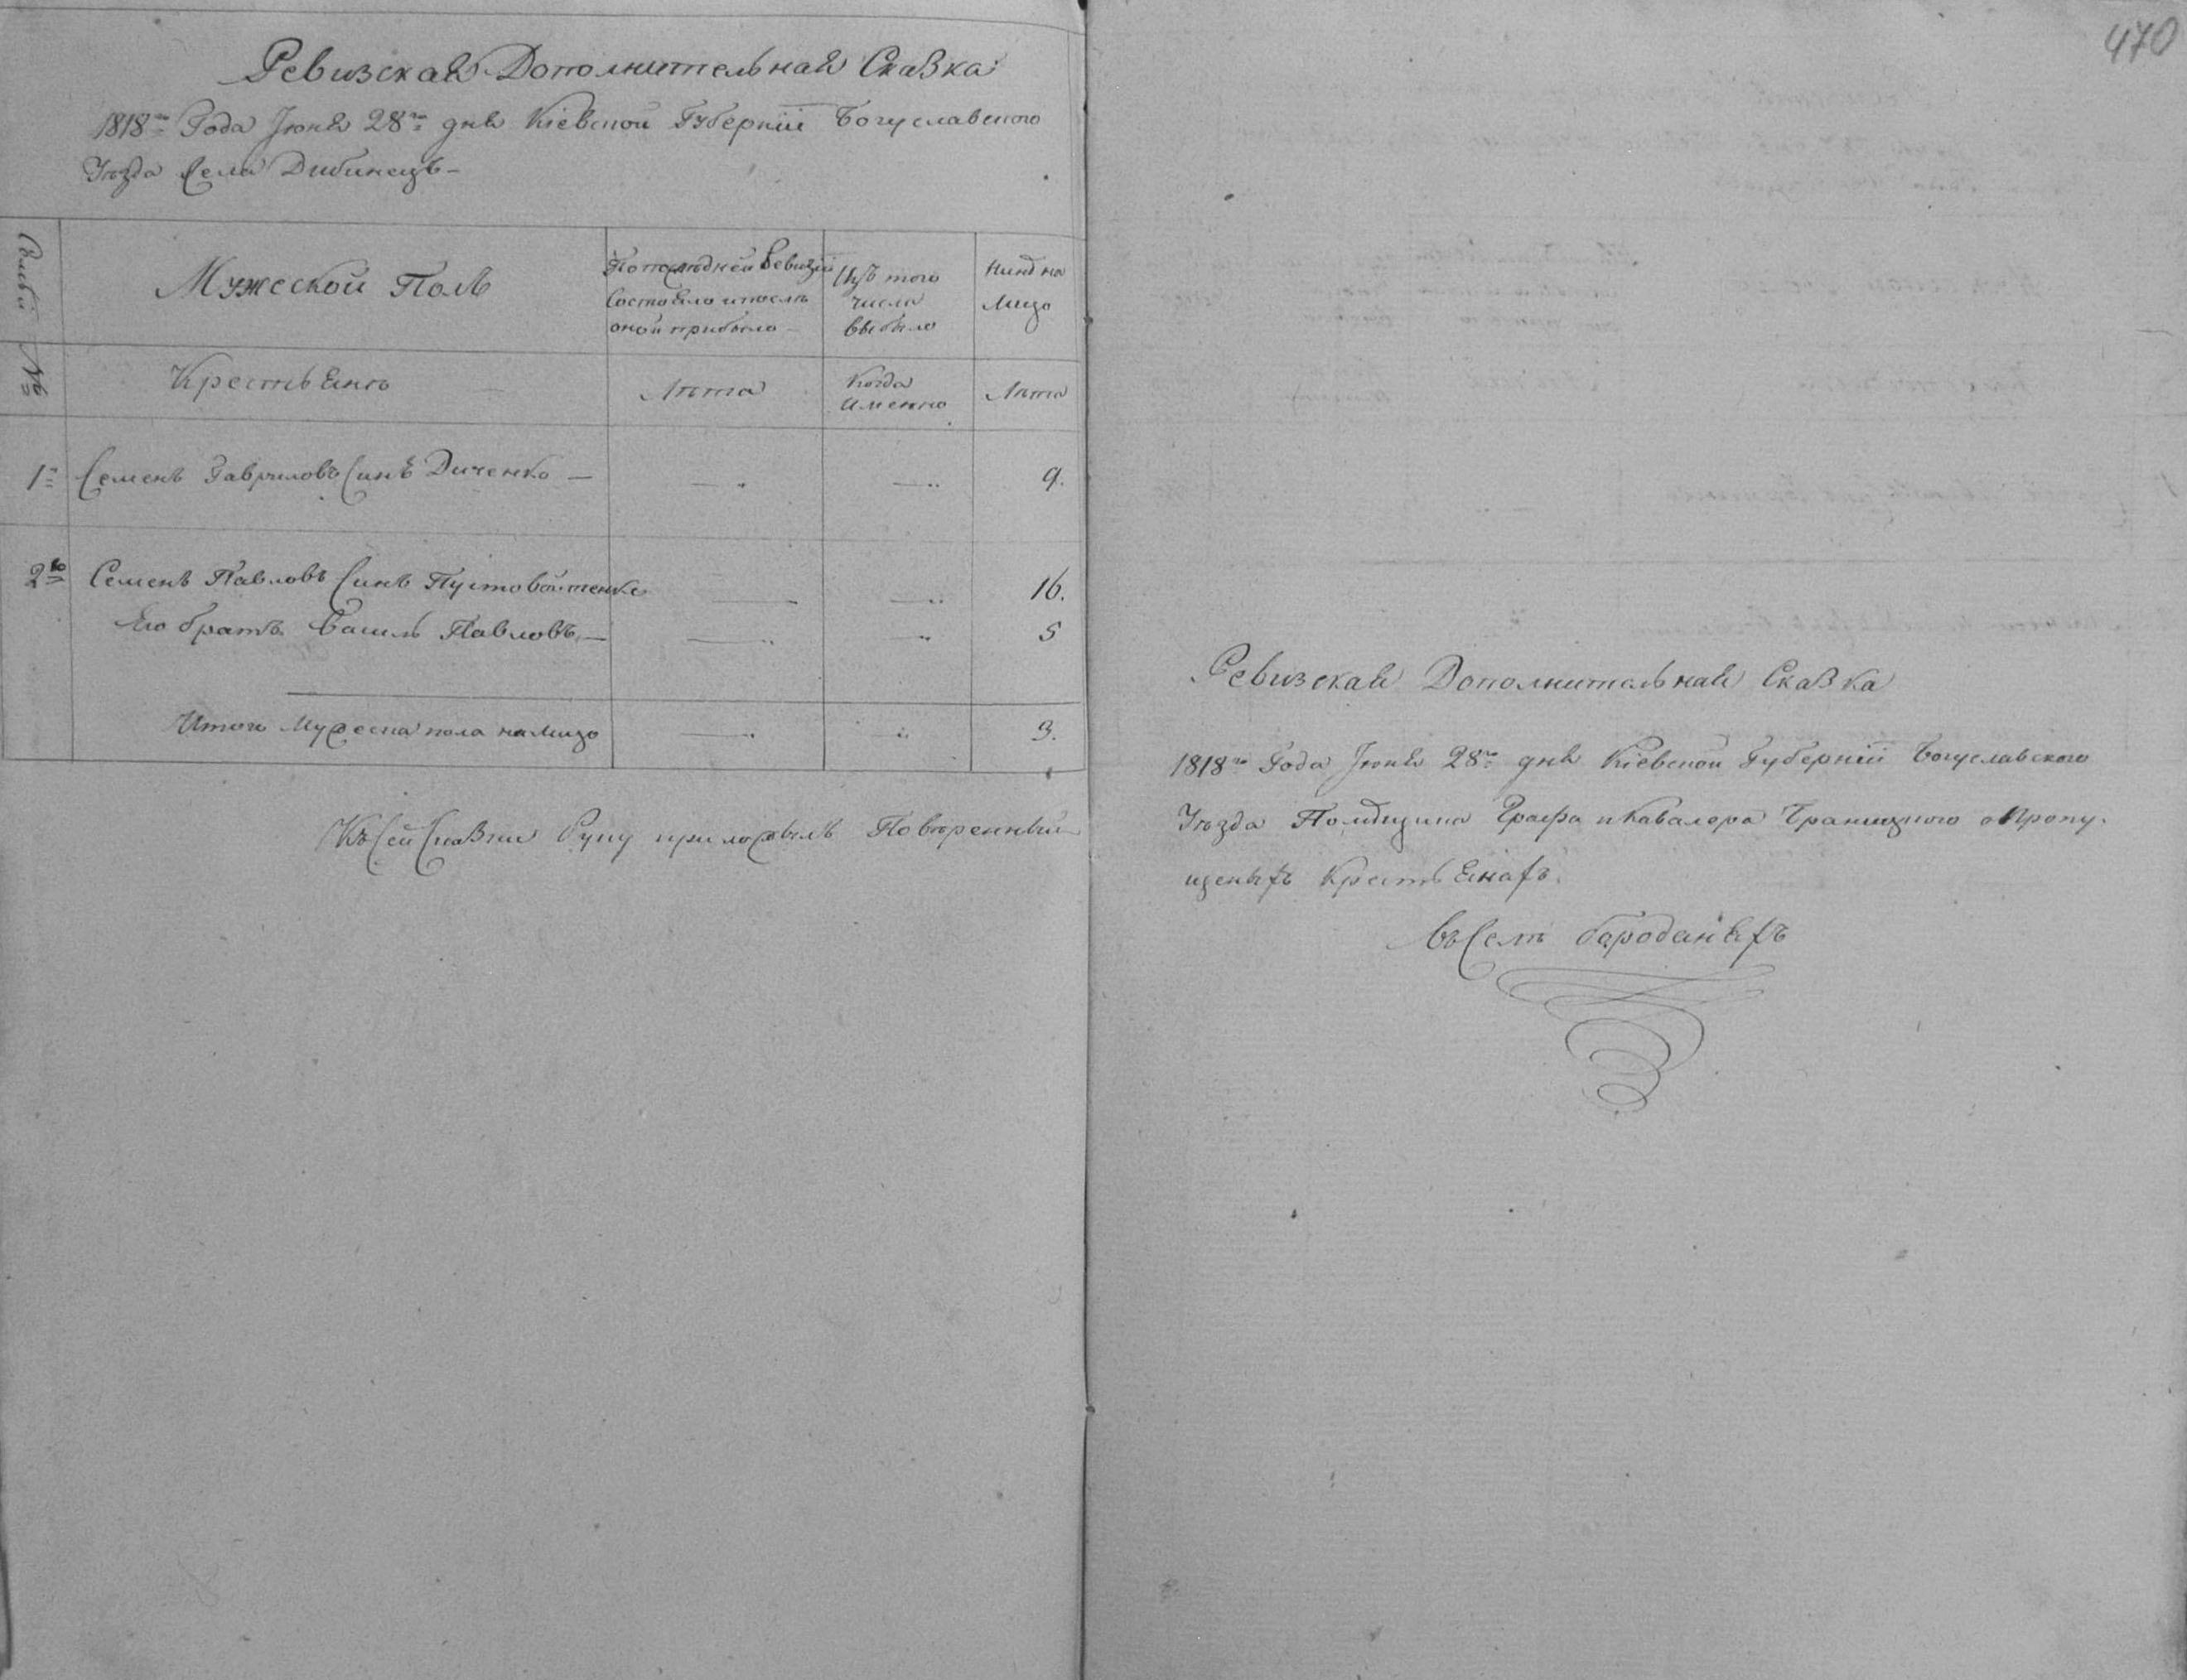 Ревизская Дополнительная Сказка
1818го Года Июня 28го дня Кіевской Губерніи Богуславского
Уѣзда Села Дибинецъ
Семьи
№
Мужеской Полъ
По последней Ревизіи
состояло и после
оной прибыло
Изъ того
числа
выбыло
Нинѣ на
лицо
Крестьяне
Лѣта
Когда
именно
Лѣта
1й Семенъ Гавриловъ Синъ Диченко 9.
2й Семенъ Павловъ Синъ Пустовойтенко 16.
Его братъ Василь Павловъ 5
Итого Мужеска пола на лицо 3.
Къ Сей Сказки Руку приложилъ Повѣренный
470
Ревизская Дополнительная Сказка
1818го Года Июня 28го дня Кіевской Губерніи Богуславского
Уѣзда Помѣщика Графа и Кавалера Браницкого о пропу-
щеныхъ Крестьянахъ.
въ Селѣ Бороданяхъ